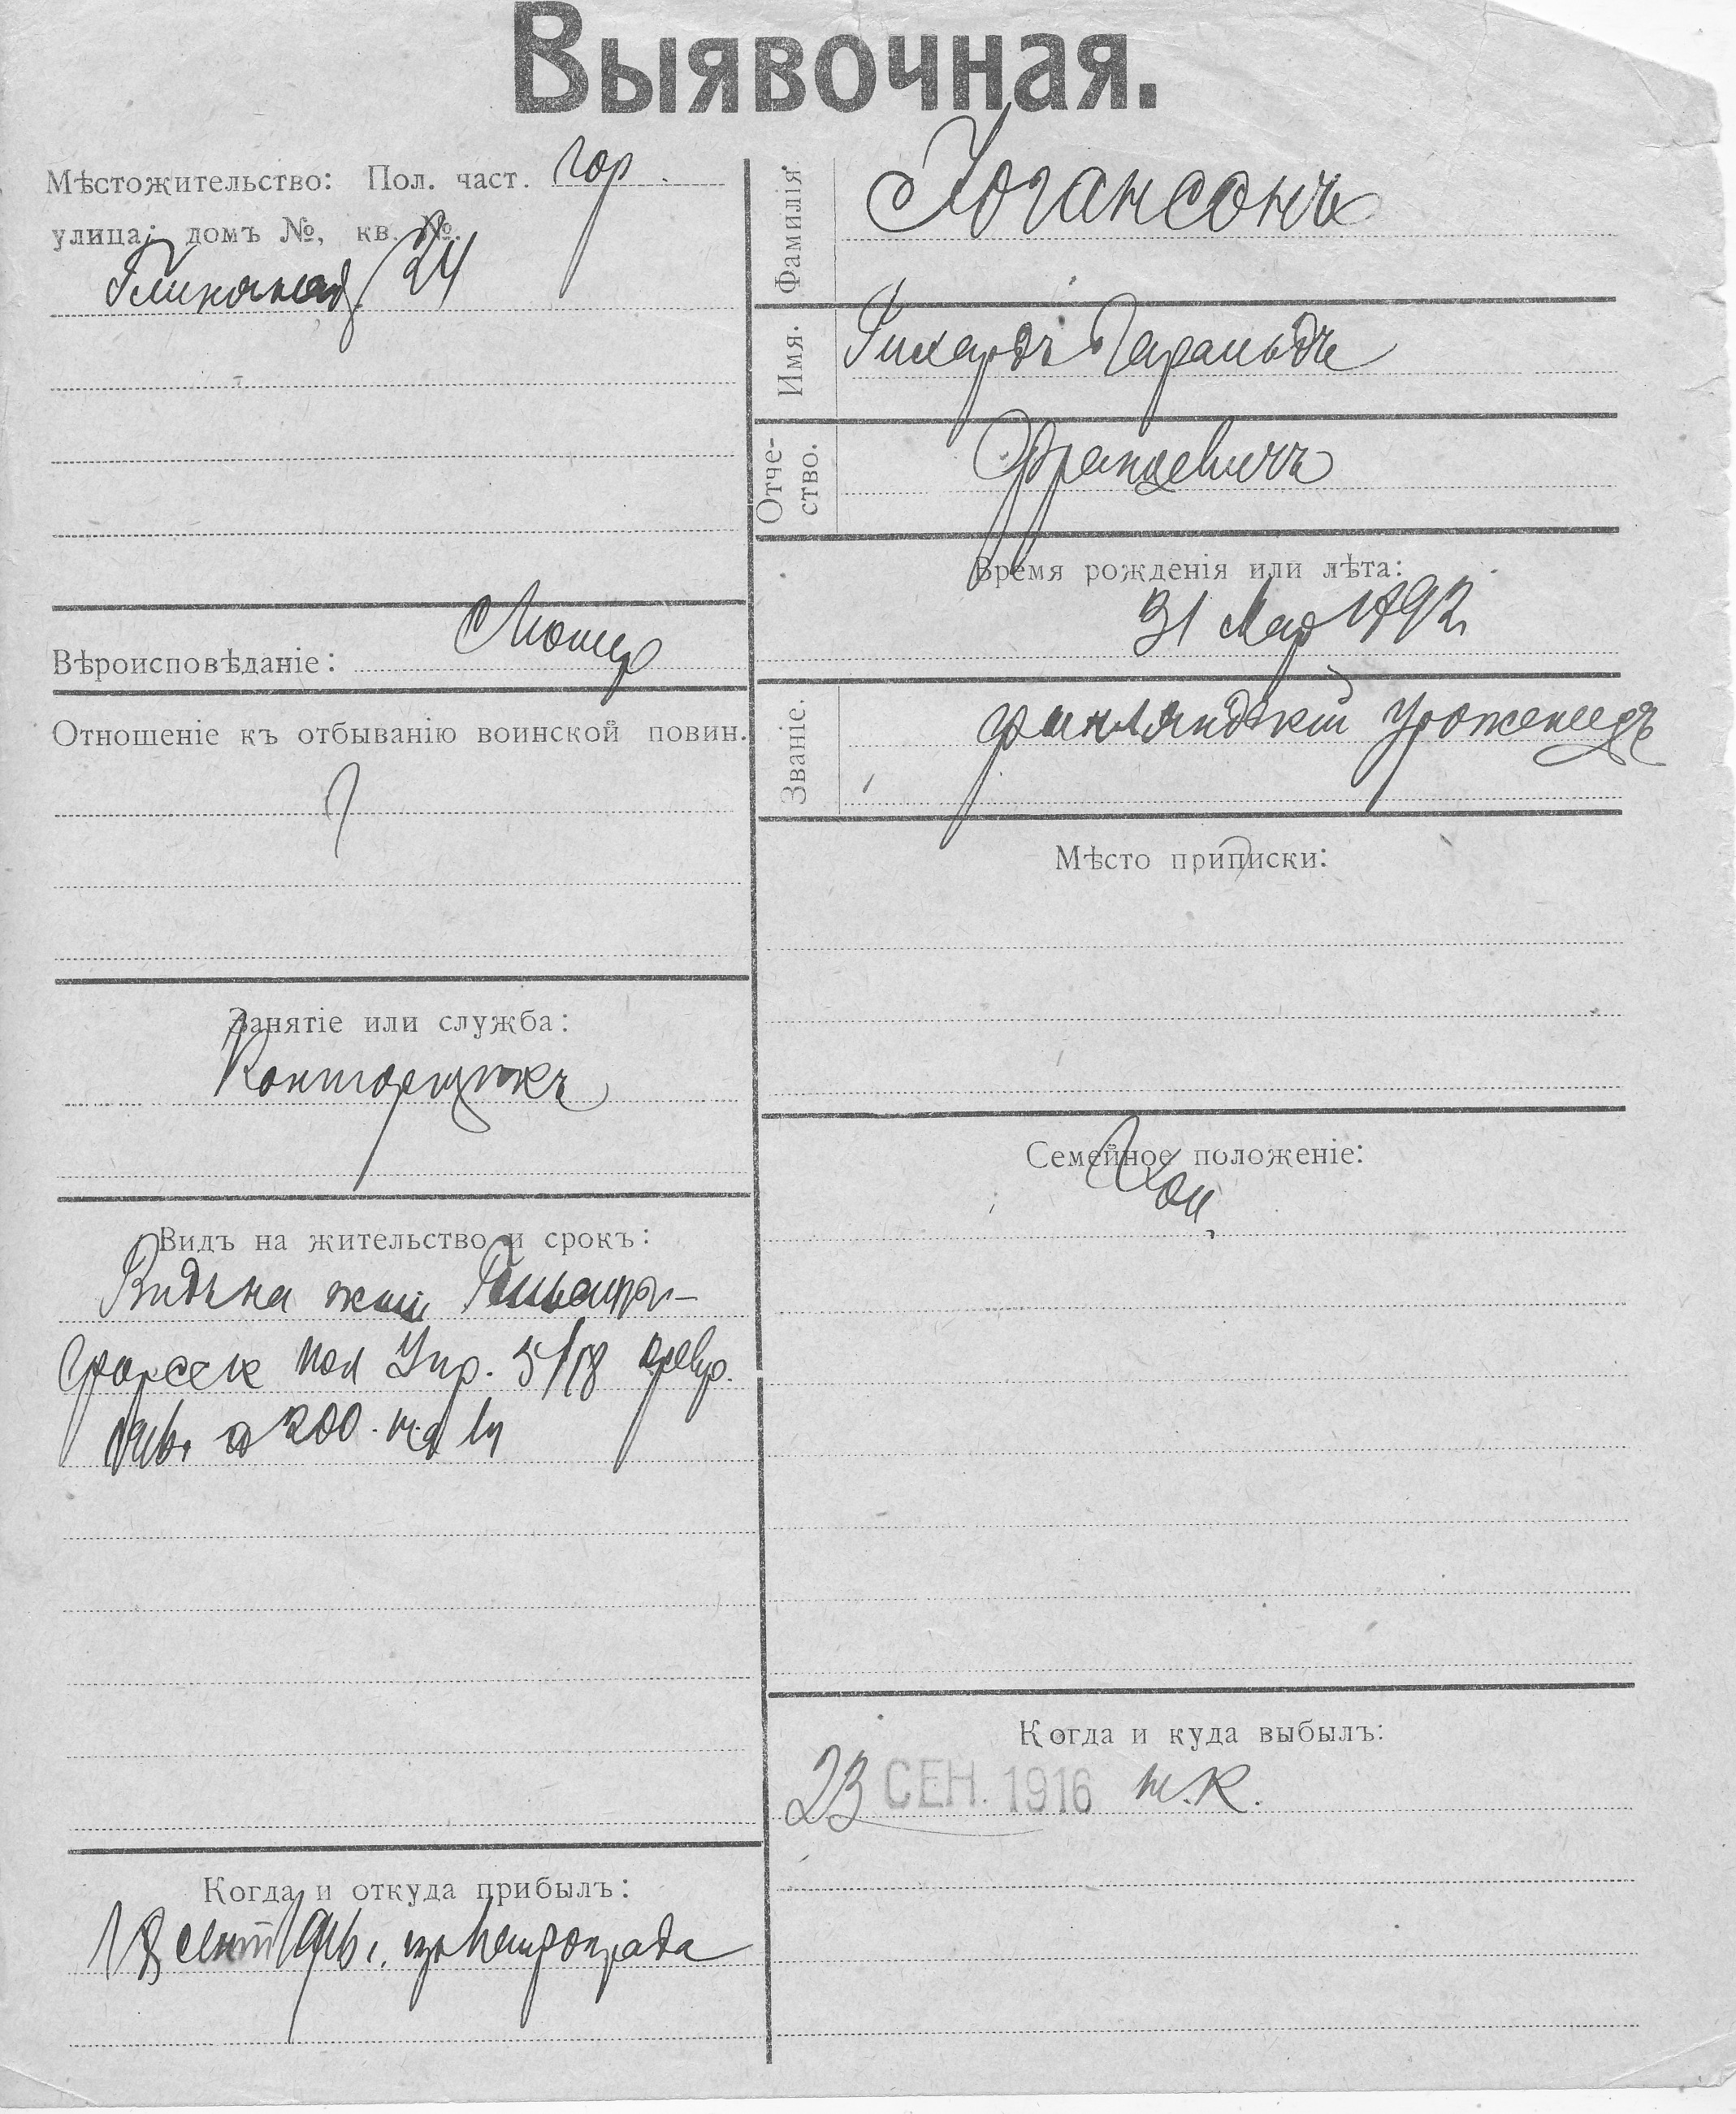 Выявочная.
Мѣстожительство: Пол. част. гор.
улица; домъ №, кв. №.
24
Вѣроисповѣданіе: Лютер
Отношеніе къ отбыванію воинской повин.
Занятіе или служба:
Конторщикъ
Видъ на жительство и срокъ:
Видъ на жит. Гельсинг-
форсск пол Упр. 5/18 февр.
1916.
Когда и откуда прибылъ:
18 сент 1916 г. изъ Петрограда
Фамилія
Іогансонъ
Имя.
Рихардъ Гаральдъ
Отче-
ство.
Францевичъ
Время рожденія или лѣта:
31 Мар 1892
Званіе.
финляндскій уроженецъ
Мѣсто приписки:
Семейное положеніе:
Хол.
Когда и куда выбылъ:
23 СЕН. 1916 т.к.